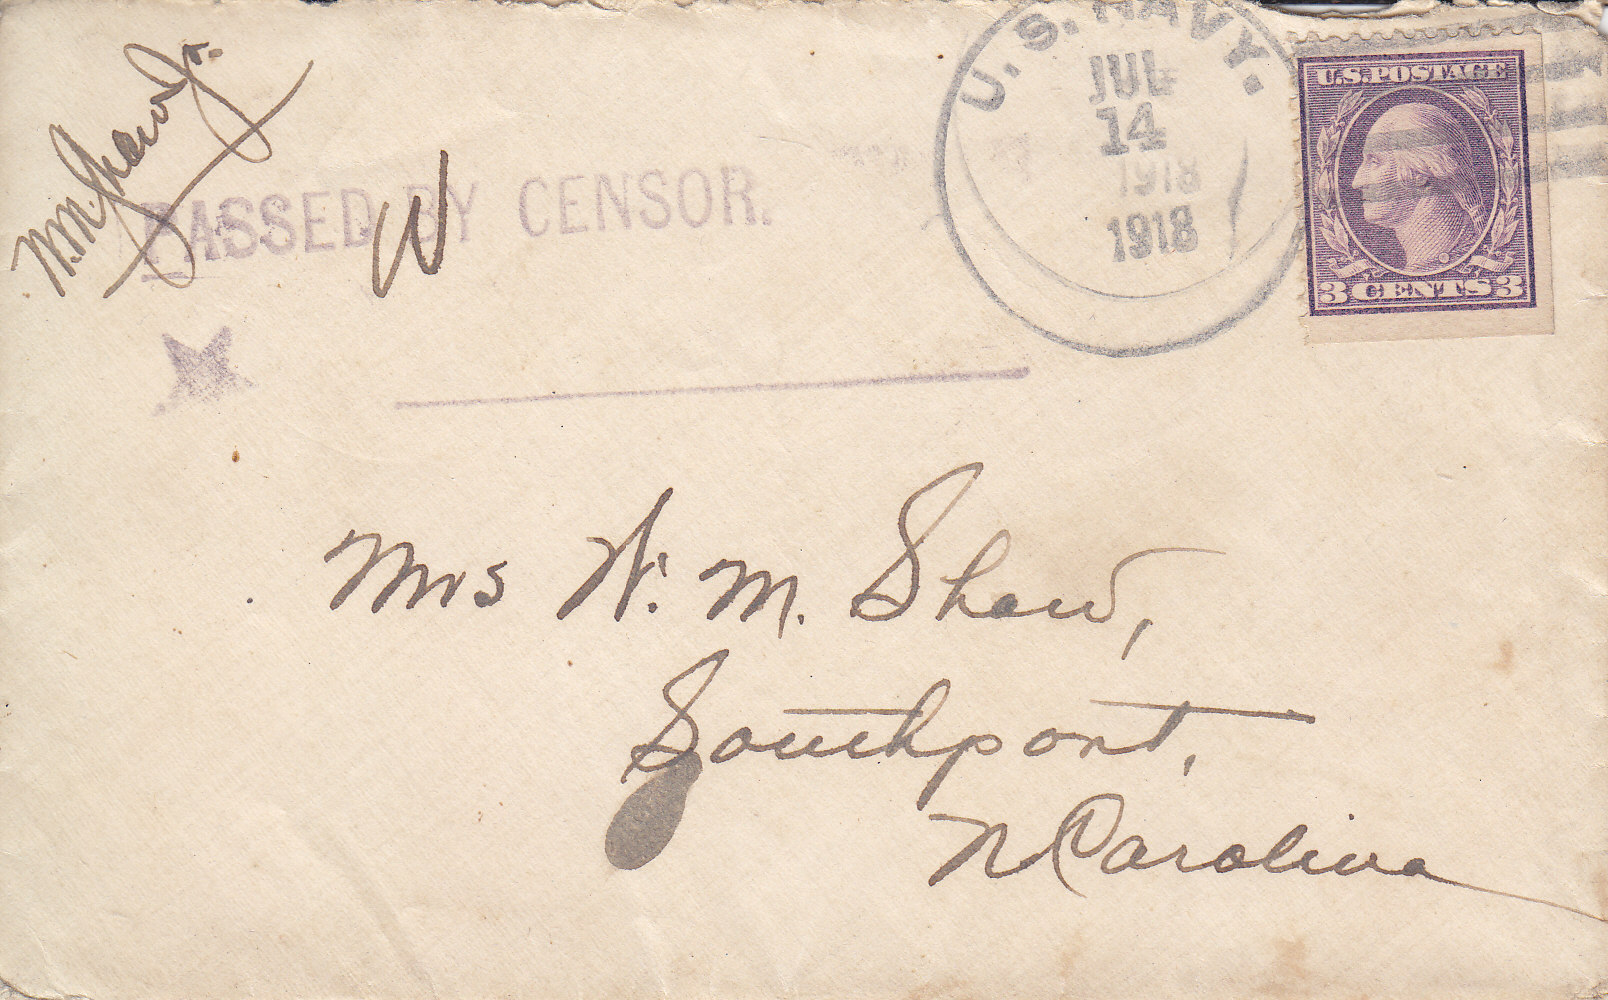 W.M. Shaw Jr.
PASSED BY CENSOR.
W
U.S. NAVY.
JUL
14
1918
1918
U.S. POSTAGE
3 CENTS 3
Mrs W. M. Shaw,
Southport,
N Carolina